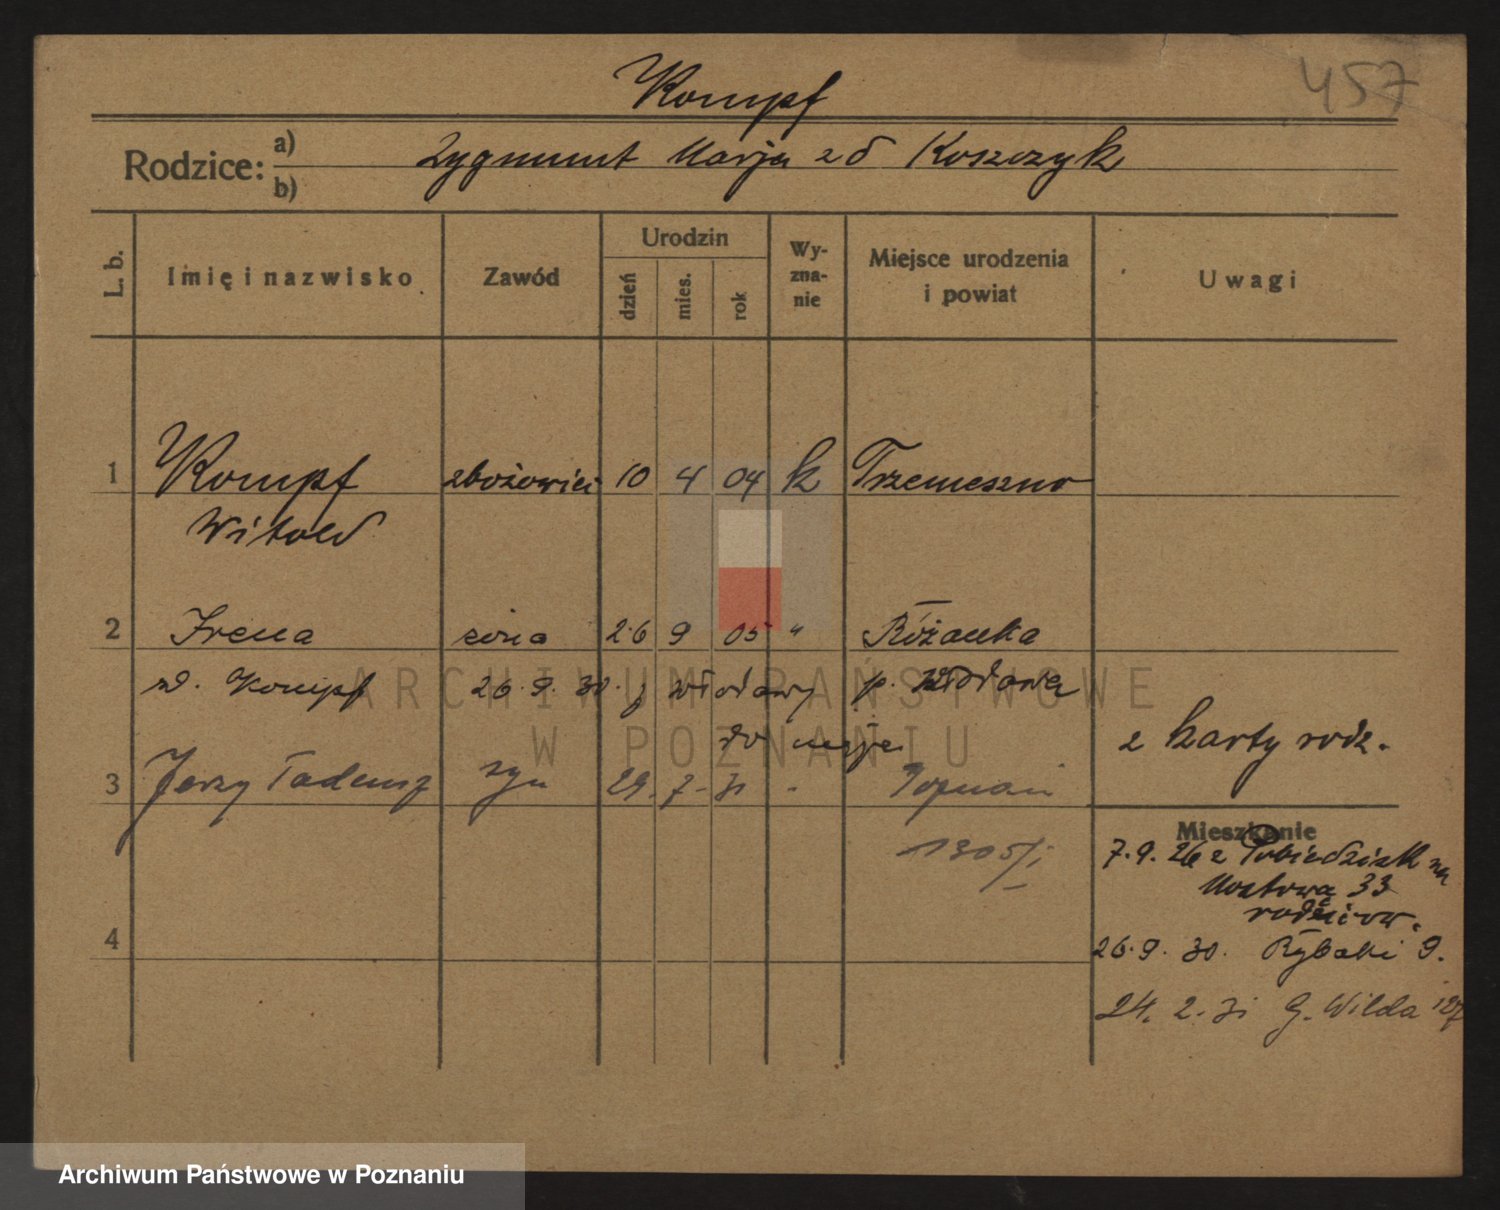 457
Kompf
Rodzice: a) b)
Zygmunt Marja zd Koszczyk
L. b.
Imię i nazwisko
Zawód
Urodzin
dzień
mies.
rok
Wy-
zna-
nie
Miejsce urodzenia
i powiat
Uwagi
1 Kompf 10 4 04 k Trzemeszno
Witold
2 Irena żona 26 9 05 " Różanka
zd. Kompf 26. 9. 30. z Włodawy p. Włodawa
do męża
z karty rodz.
3 Jerzy Tadeusz syn 29. 7. 31 Poznań
1305/I
Mieszkanie
7. 9. 26 z Pobiedzisk na
Mostowa 33
26. 9. 30. Rybaki 9.
24. 2. 31 G. Wilda 127
4
ARCHIWUM PAŃSTWOWE
W POZNANIU
Archiwum Państwowe w Poznaniu